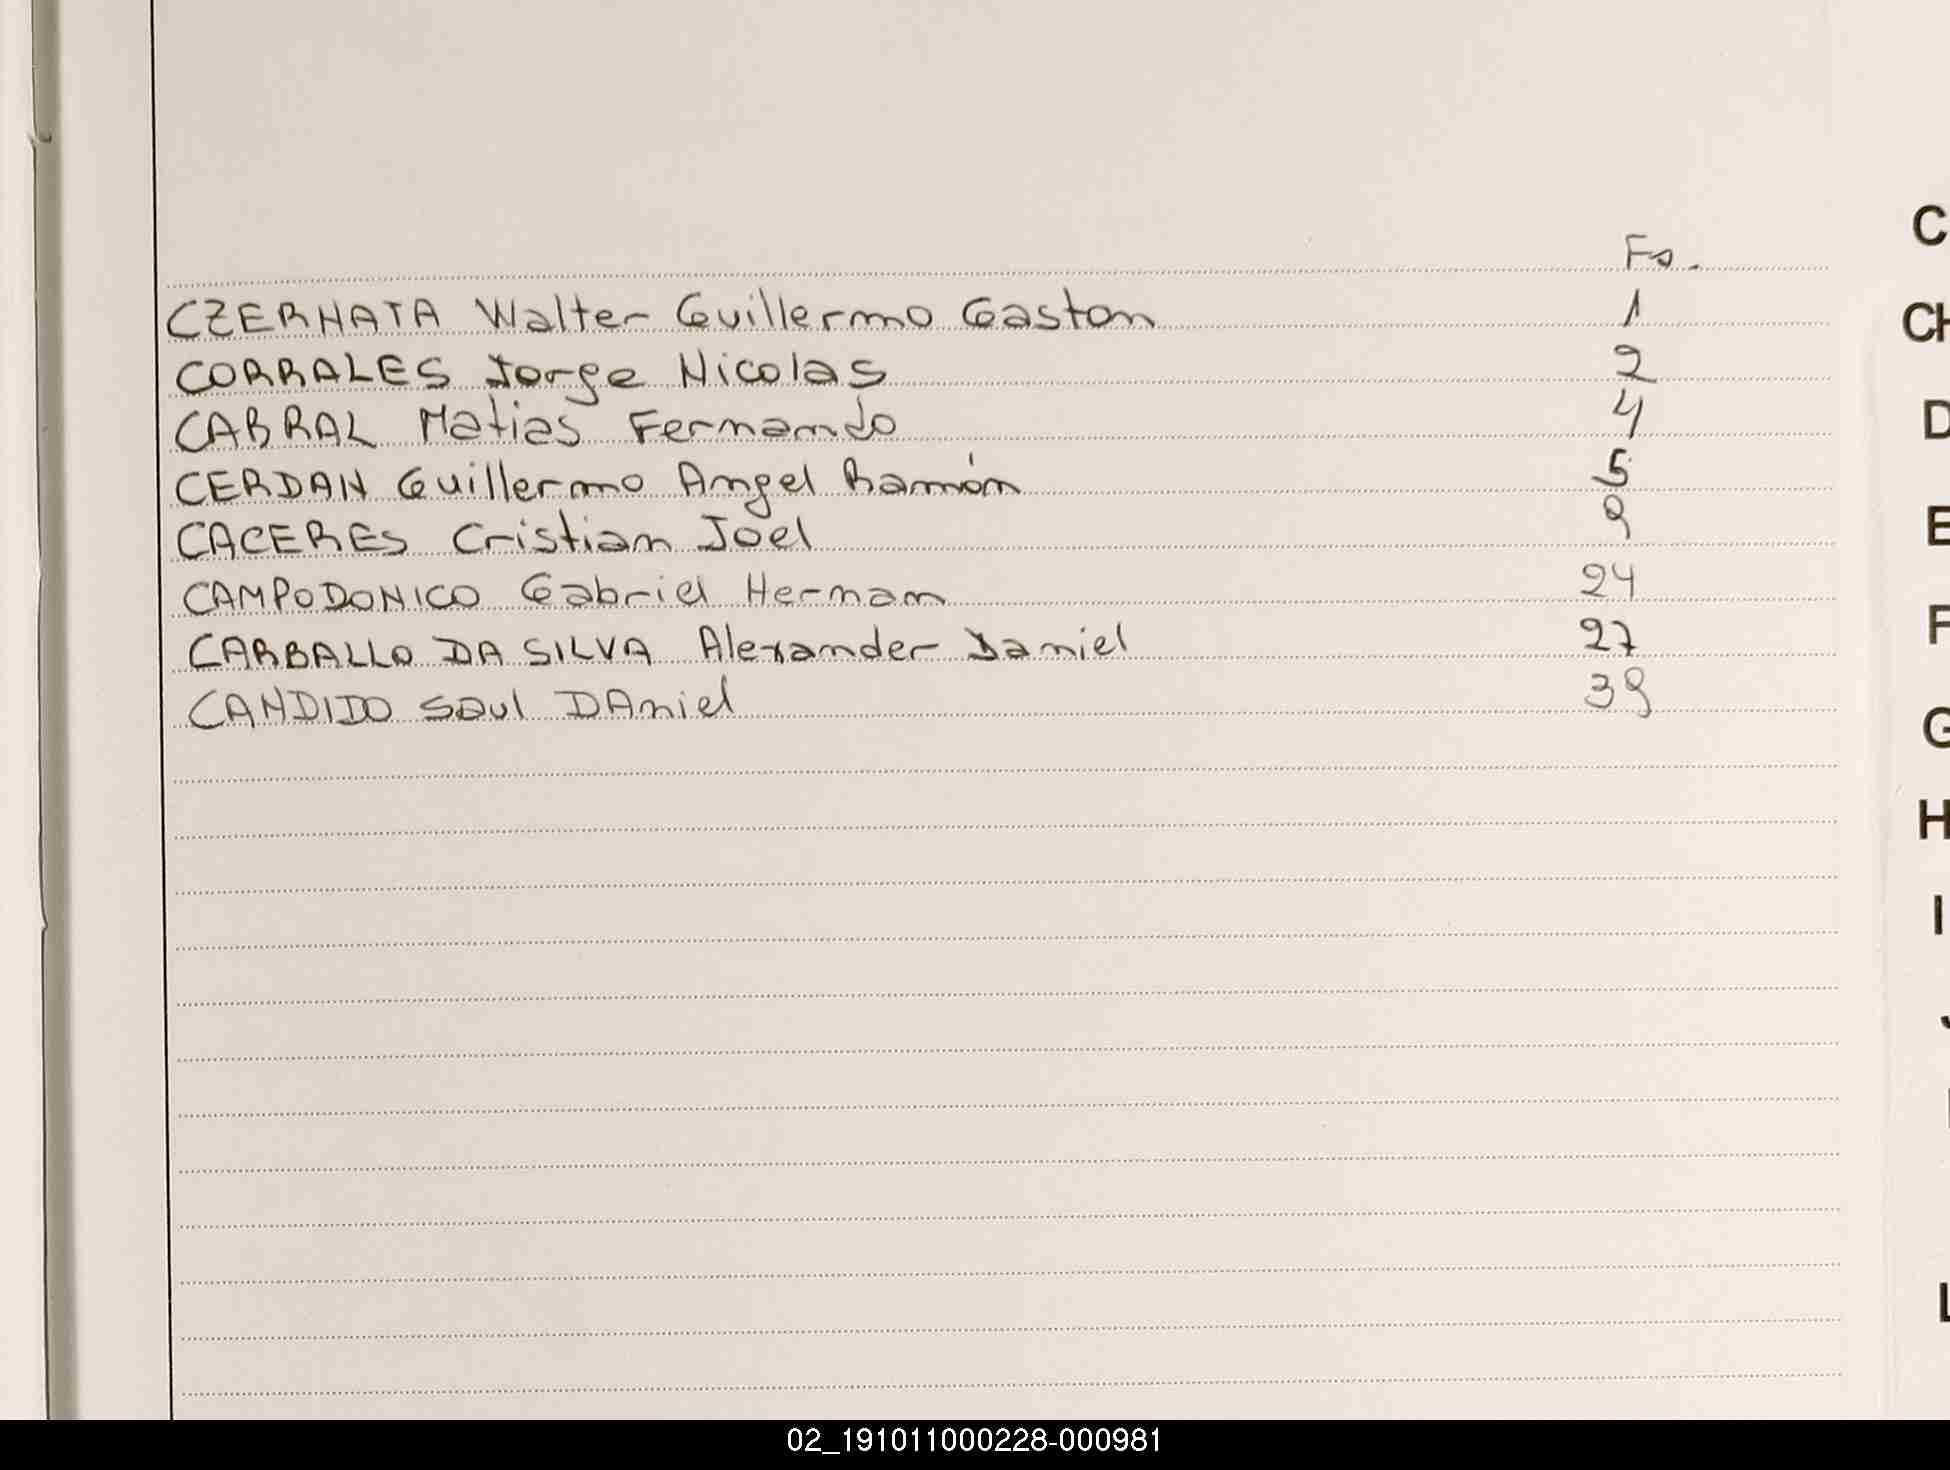 Fs.
CZERNATA Walter Guillermo Gaston 1
CORRALES Jorge Nicolas 2
CABRAL Matias Fernando 4
CERDAN Guillermo Angel Ramón 5
CACERES Cristian Joel 9
CAMPODONICO Gabriel Hernan 24
CARBALLO DA SILVA Alexander Daniel 27
CANDIDO Saul DAniel 39
C
CH
D
E
F
G
H
I
J
L
02_191011000228-000981